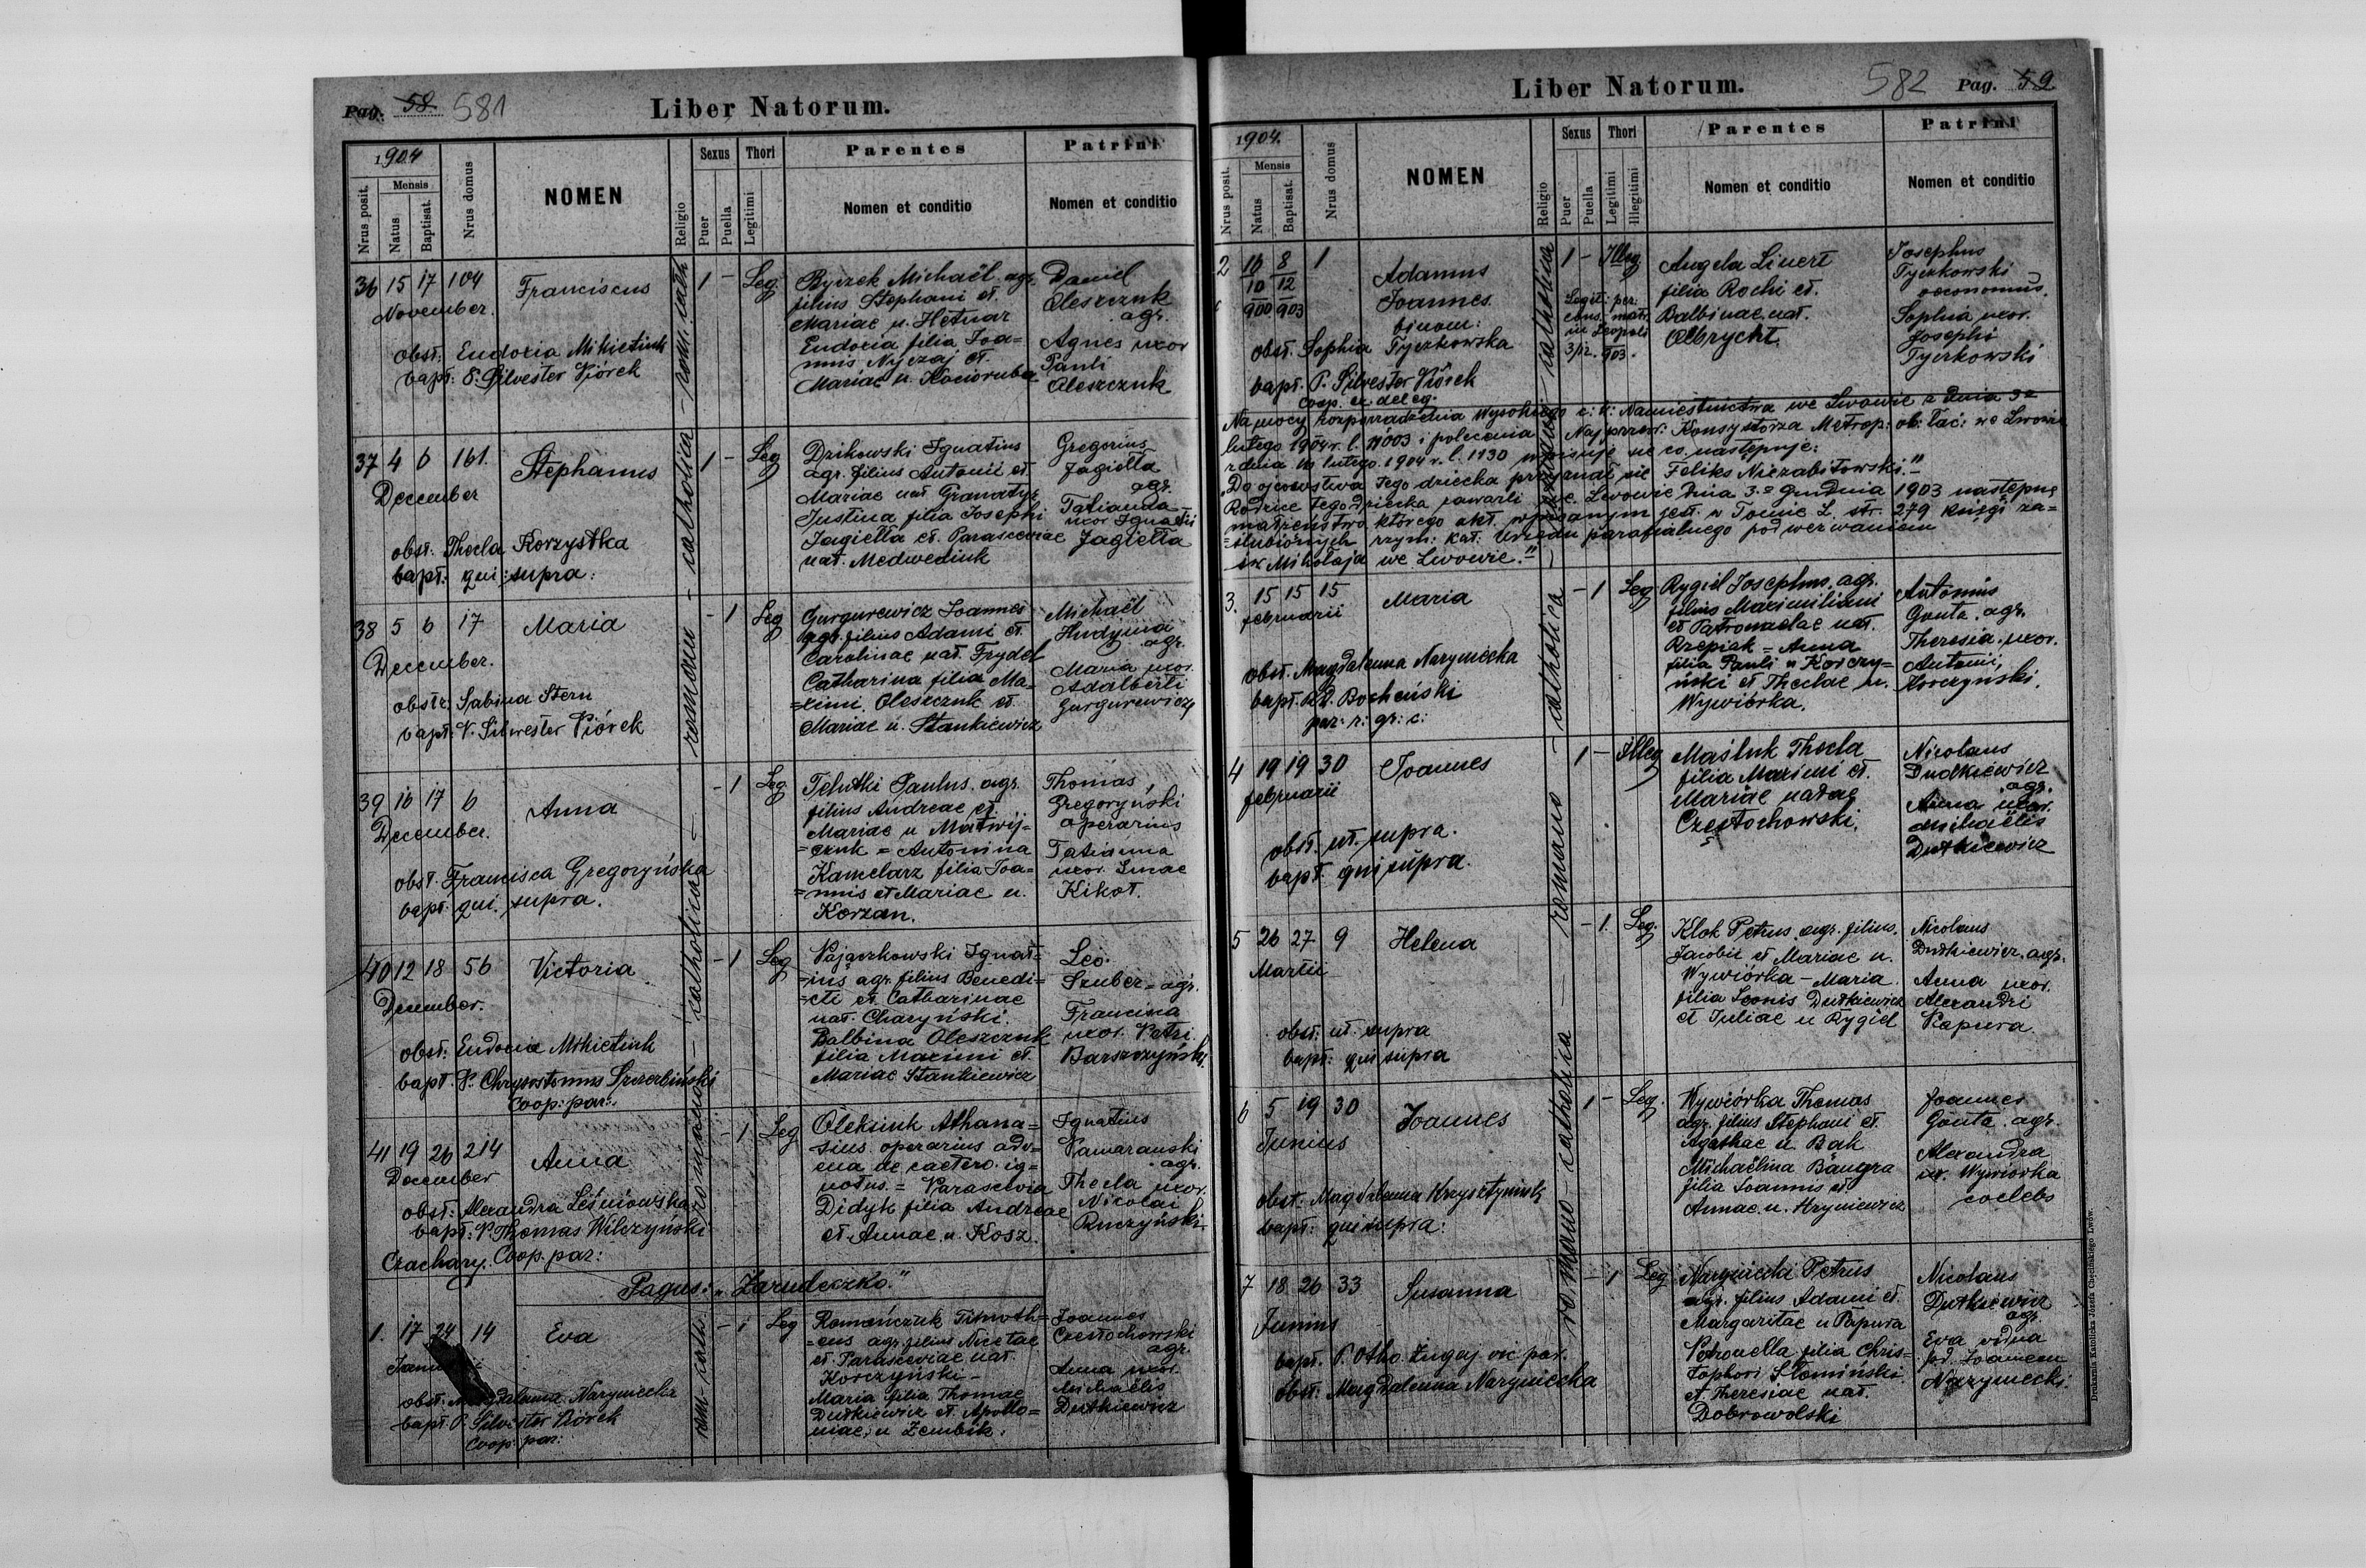 Pag. 58. 581
Liber Natorum.
1904
Nrus posit.
Mensis
Natus
Baptisat.
Nrus domus
NOMEN
Religio
Sexus
Puer
Puella
Thori
Legitimi
Parentes
Nomen et conditio
Patrini
Nomen et conditio
romano - catholica - rom. cath
36 15 17 104
November.
Franciscus
1 - Leg.
obst. Eudoxia Mikietiuk
bapt: P. Silvester Piórek
Byczek Michaël agr.
filius Stephani et
Mariae n. Hetnar
Eudoxia filia Joa=
nnis Nyczaj et
Mariae n. Kocioruba
Daniel
Oleszczuk
agr.
Agnes uxor
Pauli
Oleszczuk
37 4 6 161.
December
Stephanus
1 - Leg
obst. Thecla Korzystka
bapt: qui supra:
Dzikowski Ignatius
agr. filius Antonii et
Mariae nat Gramatyz
Justina filia Josephi
Jagiełła et Parasceviae
nat. Medwediuk
Gregorius
Jagiełła
agr.
Tatianda
uxor Ignatii
Jagiełła
38 5 6 17
December.
Maria
- 1 Leg
obstr. Sabina Stern
bapt: P. Silvester Piórek
Gurgurewicz Joannes
agr. filius Adami et
Carolinae nat. Frydel
Catharina filia Ma=
=ximi Oleszczuk et
Mariae n. Stankiewicz
Michaël
Hudyma
agr.
Maria uxor
Adalberti
Gurgurewicz
39 16 17 6
December.
Anna
- 1 Leg
obst. Francisca Gregoryńska
bapt. qui supra.
Paulus agr.
filius Andreae et
Mariae n Matwij=
=czuk = Antonina
Kanclarz filia Joa=
=nnis et Mariae n.
Korzan.
Thomas
Gregoryński
operarius
Tatianna
uxor. Lucae
Kikot.
40 12 18 56
December.
Victoria
- 1 Leg
obst: Eudoxia Mikietiuk
bapt. P. Chrysostomus Szczerbiński
Coop: par:
Pajączkowski Ignat=
=ius agr. filius Benedi=
=cti et Catharinae
nat. Charyński.
Balbina Oleszczuk
filia Maximi et
Mariae Stankiewicz
Leo
Szuber - agr.
Francisca
uxor. Petri
Barszczyński
41 19 26 214
December
Anna
- 1 Leg
obst: Alexandra Leśniowska
bapt: P. Thomas Wilczyński
Czachary. Coop. par:
Oleksiuk Athana=
sius operarius adv=
ena de caetero ig=
notus. = Parascevia
Didyk filia Andreae
et Annae n. Kosz.
Ignatius
Pamaranski
agr.
Thecla uxor.
Nicolai
Ruczyński
Pagus: "Zarudeczko."
1. 17 24 14
Eva
- 1 Leg
obst. Magdalenna Naryniecka
bapt. P. Silvester Piórek
Coop: par:
Romańczuk Timoth=
=eus agr. filius Nicetae
et Parasceviae nat.
Korczyński -
Maria filia Thomae
Dutkiewicz et Apollo=
niae, n Zembik.
Joannes
Częstochowski
agr.
Anna uxor.
Michaëlis
Dutkiewicz
Liber Natorum.
582 Pag. 59
1904.
Nrus posit.
Mensis
Natus
Baptisat.
Nrus domus
NOMEN
Religio
Sexus
Puer
Puella
Thori
Legitimi
Illegitimi
Parentes
Nomen et conditio
Patrini
Nomen et conditio
romano - catholica - romano - catholica
2 16 8 1
10 12
900 903
Adamus
Joannes
binom:
1 - Illeg
Legit: per
cons. matr.
in Leopoli
3/12. 903.
obst. Sophia Tyczkowska
bapt. P. Silvester Piórek
Coop. ex deleg.
Angela Linert
filia Rochi et.
Balbinae nat.
Olbrycht.
Josephus
Tyczkowski
oeconomus.
Sophia uxor.
Josephi
Tyczkowski
Na mocy rozporządzenia Wysokiego c: k: Namiestnictwa we Lwowie z dnia 3go
lutego 1904 r. l. 11003 i polecenia Najprzew: Konsystorza Metrop: ob: łać: we Lwowie
z dnia 16 lutego 1904 r. l. 1130 wpisuje się co następuje:
"Do ojcowstwa tego dziecka przyznał się Feliks Niezabitowski."
Rodzice tego dziecka zawarli we Lwowie dnia 3go Grudnia 1903 następnę
małżeństwo którego akt. wpisanym jest w Tomie L. str. 279 księgi za=
=ślubionych rzym: kat: Urzędu parafialnego pod wezwaniem
św Mikołaja we Lwowie."
3. 15 15 15
februarii
Maria
- 1 Leg
obst. Magdalenna Naryniecka
bapt. RD. Bocheński
par: r: gr: c:
Rygiel Josephus, agr.
filius Maximiliani
et Patronaelae nat.
Rzepiak = Anna
filia Pauli n Korczy=
ński et Theclae n.
Wywiórka.
Antonius
Gonta. agr.
Theresia uxor.
Antonii,
Korczyński.
4 19 19 30
februarii
Joannes
1 - illeg
obst. ut supra.
bapt. qui supra.
Maśluk Thecla
filia Maximi et.
Mariae natae
Częstochowski.
Nicolaus
Dudkiewicz
agr.
Anna uxor.
Michaëlis
Dutkiewicz
5 26 27 9
Martii
Helena
- 1 Leg.
obst: ut supra
bapt: qui supra
Klok Petrus agr. filius.
Jacobi et Mariae n.
Wywiórka - Maria
filia Leonis Dutkiewicz
et Juliae n Rygiel
Nicolaus
Dutkiewicz. agr.
Anna uxor.
Alexandri
Papura
6 5 19 30
Junius
Joannes
1 - Leg.
obst. Magdalenna Krzysztyniuk
bapt: qui supra:
Wywiórka Thomas
agr. filius Stephani et
Agathae n. Bak
Michaëlina Bangra
filia Joannis et
Annae n. Hryniewicz
Joannes
Gonta. agr.
Alexandra
Wywiórka
coelebs
7 18 26 33
Junius
Susanna
- 1 Leg
bapt. P. Otho Zugaj vic par.
obst: Magdalenna Naryniecka
Naryniecki Petrus
agr. filius Adami et.
Margaritae n Papura
Petronella filia Chris=
tophori Słomiński
et Theresiae nat.
Dobrowolski
Nicolaus
Dutkiewicz
agr
Eva vidua
Joannem
Naryniecki.
Drukarnia Katolicka Józefa Chęcińskiego Lwów.